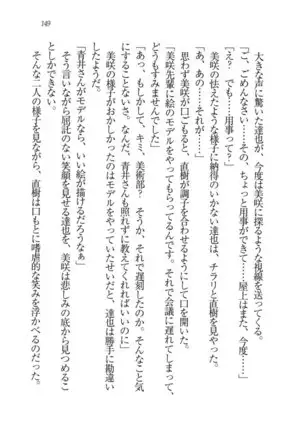 149
大きな声に驚いた達也が、今度は美咲に探るような視線を送ってくる。
「ご、ごめんなさい……その、ちょっと用事ができて……屋上はまた、今度……」
「え？　でも……用事って？」
美咲の怯えたような様子に納得のいかない達也は、チラリと直樹を見やった。
「あ、あの……それは」
思わず美咲が口ごもると、直樹が調子を合わせたように口を開く。
「美咲先輩に絵のモデルをやってもらってるんです。それで会議に遅れてしまって、
どうもすみませんでした」
「あ、もしかして、キミ、美術部？　そうか、それで遅刻したのか。そんなこと気
にすることないさ。なんだ、青井さんも照れずに教えてくれればいいのに」
美咲の様子がおかしかったのはモデルをやっていたせいだと、達也は勝手に勘違い
したようだ。
「青井さんがモデルなら、いい絵が描けるだろうなぁ」
そう言いながら屈託のない笑顔を見せる達也を、美咲は悲しみの底から見つめるこ
としかできない。
そんな二人の様子を見ながら、直樹は口もとに嗜虐的な笑みを浮かべるのだった。